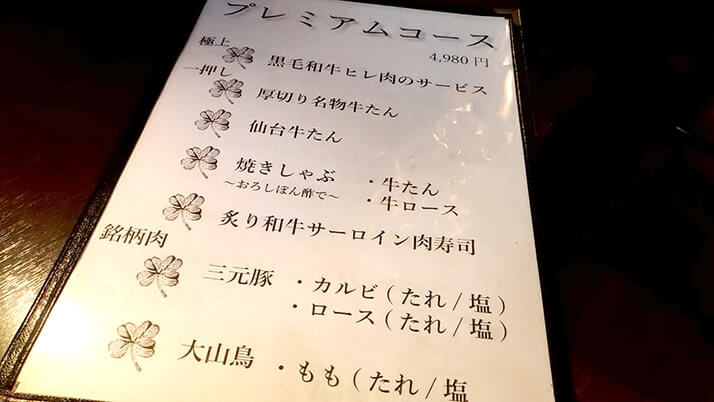 プレミアムコース
4,980 円
極上
黒毛和牛ヒレ肉のサービス
一押し
厚切り名物牛たん
仙台牛たん
焼きしゃぶ ・牛たん
～おろしぽん酢で～ ・牛ロース
炙り和牛サーロイン肉寿司
銘柄肉
三元豚 ・カルビ ( たれ / 塩 )
・ロース ( たれ / 塩 )
大山鳥 ・もも ( たれ / 塩